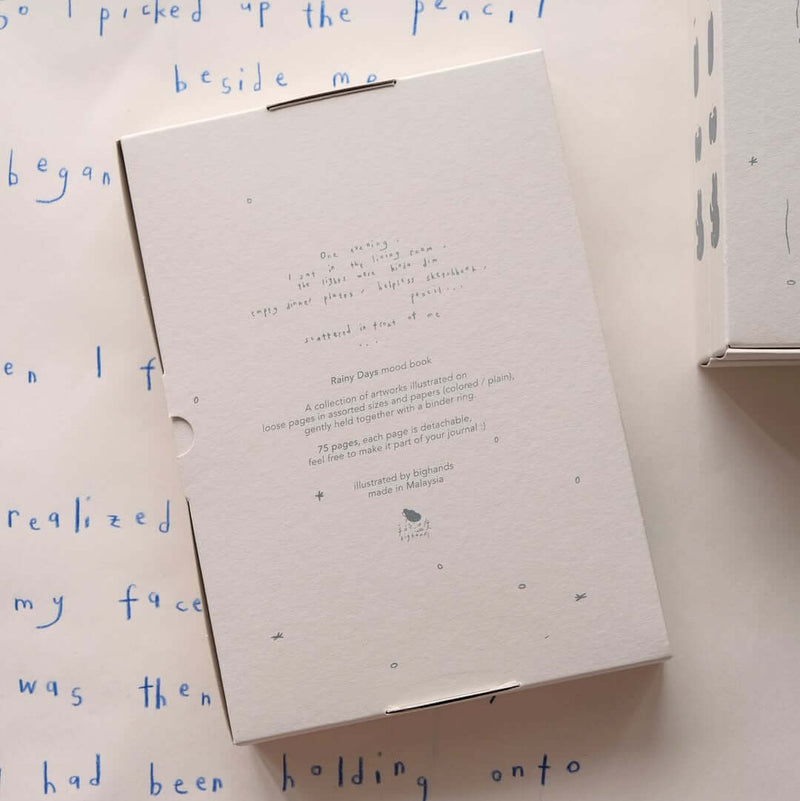 So I picked up the pencil
beside me
began
en I f
realized
my face
was then
had been holding onto
One evening,
I sat in the living room.
the lights were kinda dim
empty dinner plates, helpless sketchbook,
pencil...
scattered in front of me
...
Rainy Days mood book
A collection of artworks illustrated on
loose pages in assorted sizes and papers (colored / plain),
gently held together with a binder ring.
75 pages, each page is detachable,
feel free to make it part of your journal :)
illustrated by bighands
made in Malaysia
bighands